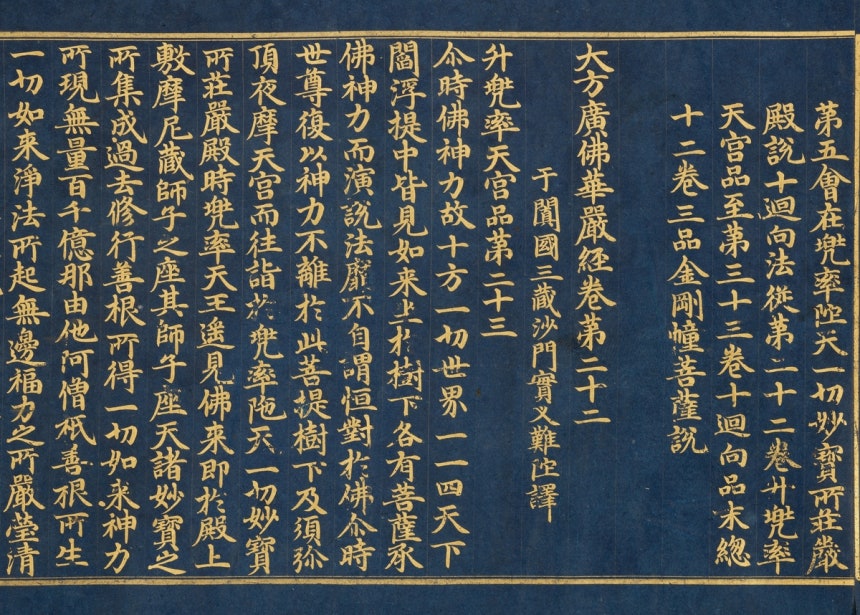 第五會在兜率陁天一切妙寳所莊嚴
殿說十迴向法從第二十二卷升兜率
天宫品至第三十三卷十迴向品末緫
十二卷三品金剛幢菩薩說
大方廣佛華嚴經卷第二十二
于闐國三藏沙門實叉難陁譯
升兜率天宫品第二十三
尒時佛神力故十方一切世界一一四天下
閻浮提中皆見如来坐於樹下各有菩薩承
佛神力而演說法靡不自謂恒對於佛尒時
世尊復以神力不離於此菩提樹下及須弥
頂夜摩天宫而往詣於兜率陁天一切妙寳
所莊嚴殿時兜率天王遥見佛來即於殿上
敷摩尼藏師子之座其師子座天諸妙寳之
所集成過去修行善根所得一切如来神力
所現無量百千億那由他阿僧祇善根所生
一切如来淨法所起無邊福力之所嚴瑩清